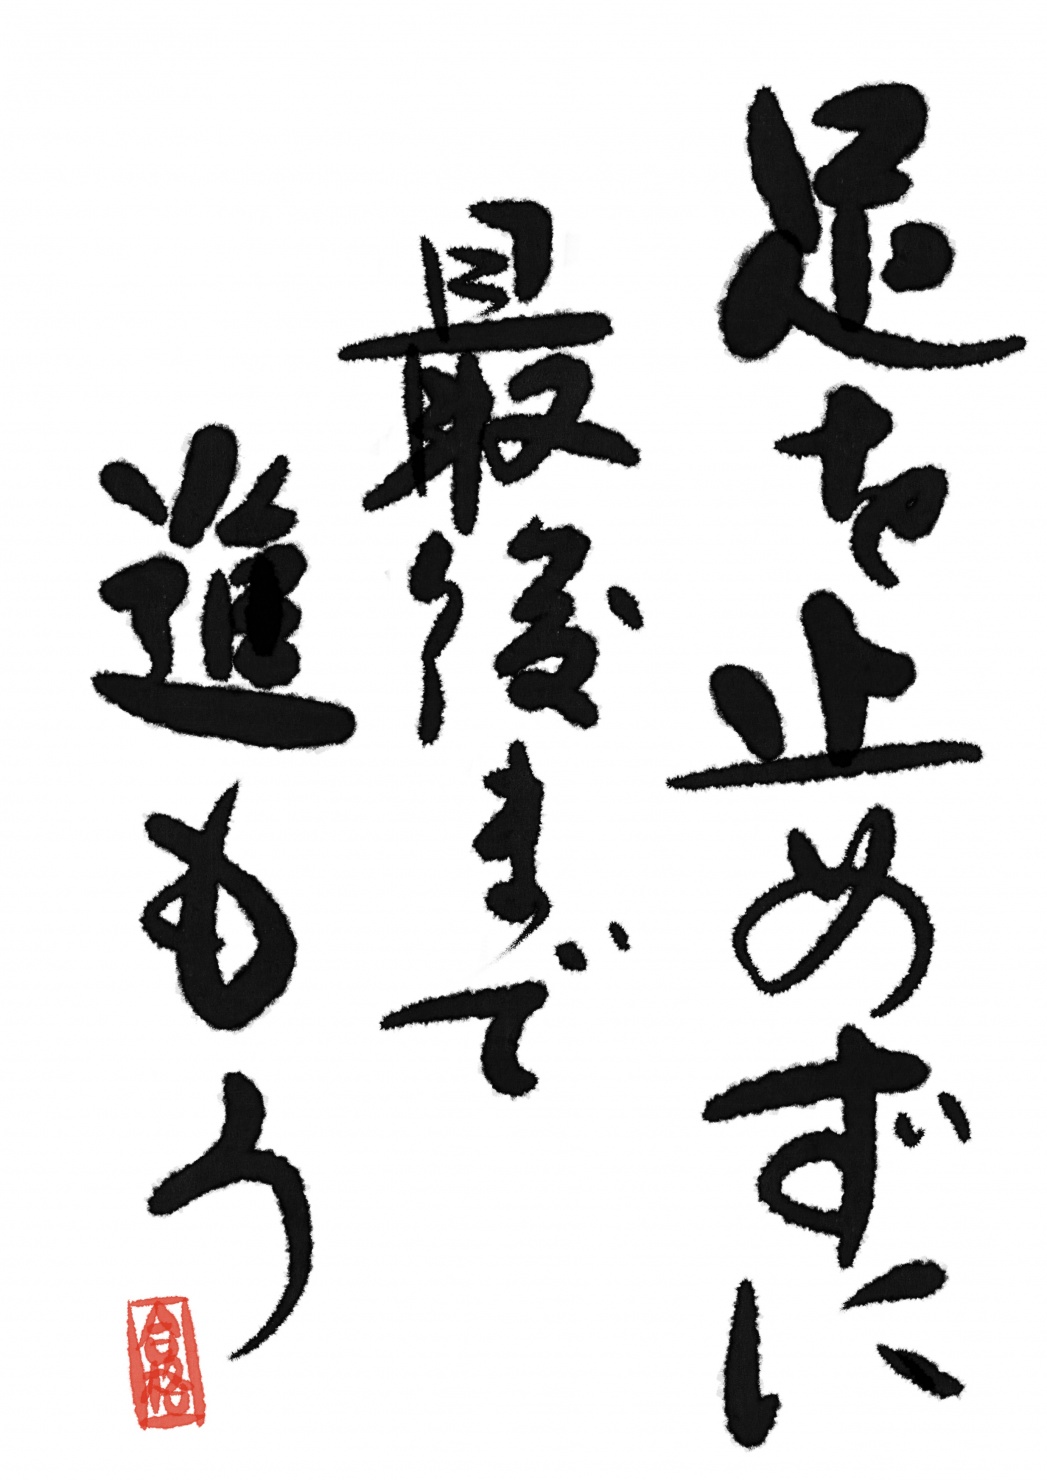 足を止めずに
最後まで
進もう
合格